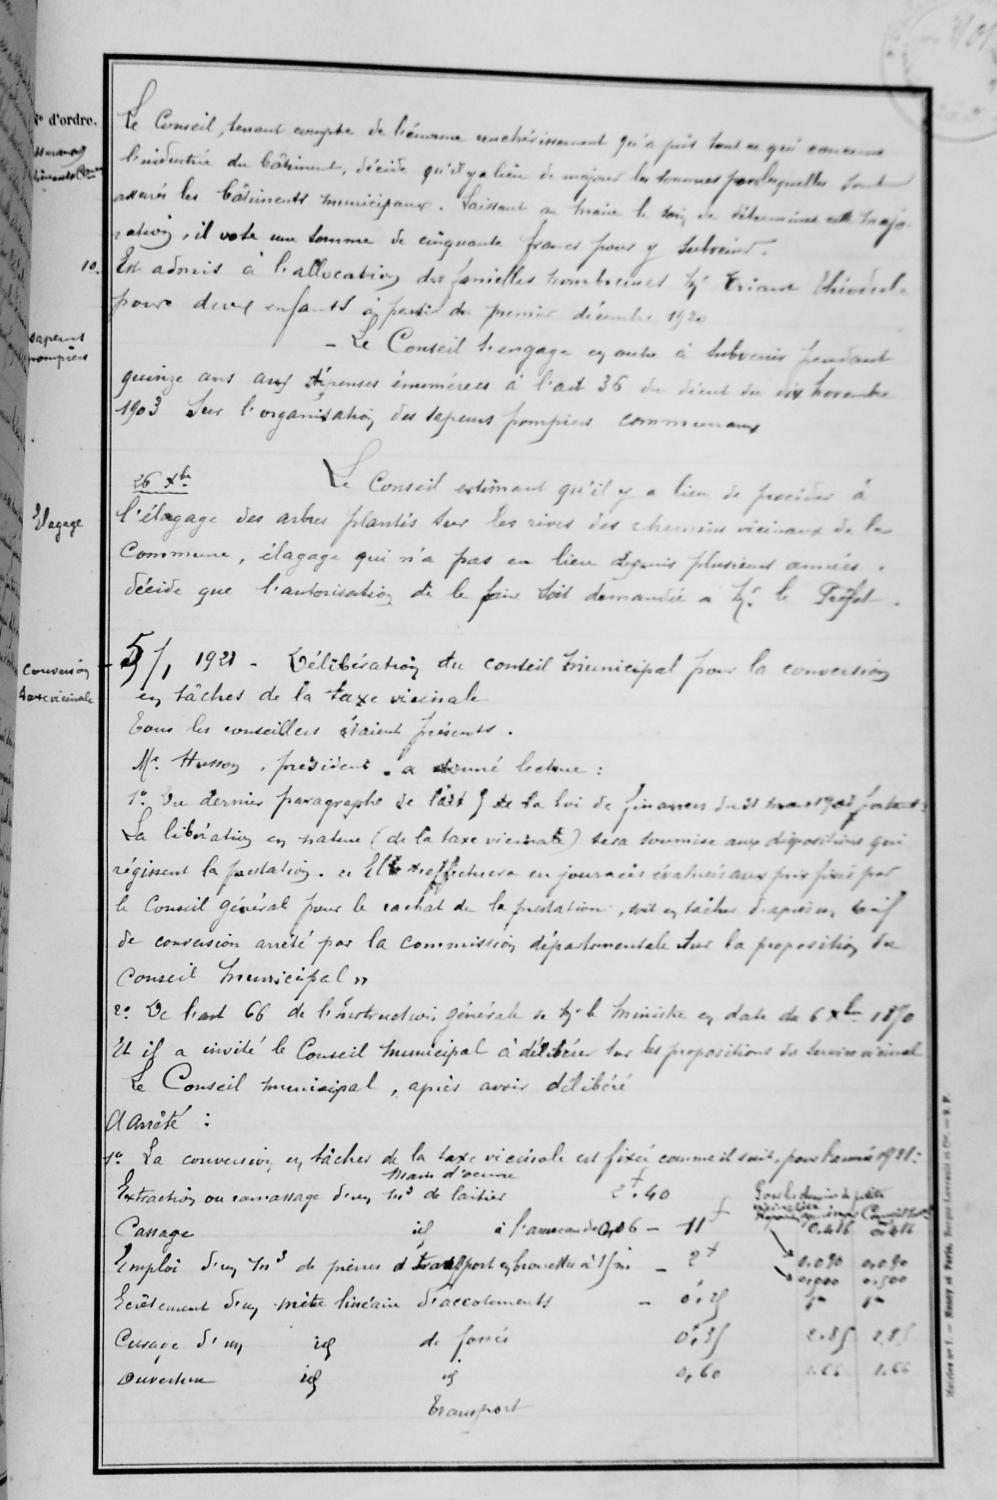 N° d'ordre.
Le Conseil, tenant compte de l'énorme renchérissement qu'a pris tout ce qui concerne
l'industrie du bâtiment, décide qu'il y a lieu de majorer les sommes pour lesquelles sont
assurés les bâtiments municipaux. Laissant au Maire le soin de déterminer cette majo-
ration, il vote une somme de cinquante francs pour y subvenir.
10.
Est admis à l'allocation des familles nombreuses Mr
pour deux enfants à partir du premier décembre 1920
sapeurs
pompiers
- Le Conseil s'engage en outre à subvenir pendant
quinze ans aux dépenses énumérées à l'art 36 du décret du dix novembre
1903 sur l'organisation des sapeurs pompiers communaux
26 Xbre
Elagage
Le Conseil estimant qu'il y a lieu de procéder à
l'élagage des arbres plantés sur les rives des chemins vicinaux de la
Commune, élagage qui n'a pas eu lieu depuis plusieurs années.
décide que l'autorisation de le faire soit demandée à Mr. le Préfet.
conversion
taxe vicinale
5/1 1921 - Délibération du conseil municipal pour la conversion
en tâches de la taxe vicinale
Tous les conseillers étaient présents.
Mr. Husson, président, a donné lecture :
1° Du dernier paragraphe de l'art 5 de la loi de finances du 31 mars 1903 portant :
La libération en nature (de la taxe vicinale) sera soumise aux dispositions qui
régissent la prestation. Elle s'effectuera en journées évaluées aux prix fixés par
le Conseil général pour le rachat de la prestation, soit en tâches d'après un tarif
de conversion arrêté par la commission départementale sur la proposition du
Conseil Municipal »
2° De l'art 66 de l'instruction générale de Mr le Ministre en date du 6 Xbre 1870
Et il a invité le Conseil Municipal à délibérer sur les propositions du service vicinal
Le Conseil Municipal, après avoir délibéré
Arrête :
1° La conversion en tâches de la taxe vicinale est fixée comme il suit, pour l'année 1921 :
Main d'œuvre
Extraction ou ramassage d'un m3 de laitier 2f.40
Cassage id à l'anneau de 0,06 - 11f 0.416 0.416
Emploi d'un m3 de pierres et transport en brouettes à 15m - 2f 0.090 0.090
0.500
Ecrêtement d'un mètre linéaire d'accotements - 0f.25
Curage d'un id de fossés 0f.35 2.85 2.85
Ouverture id id 0,60 1.66 1.66
Transport